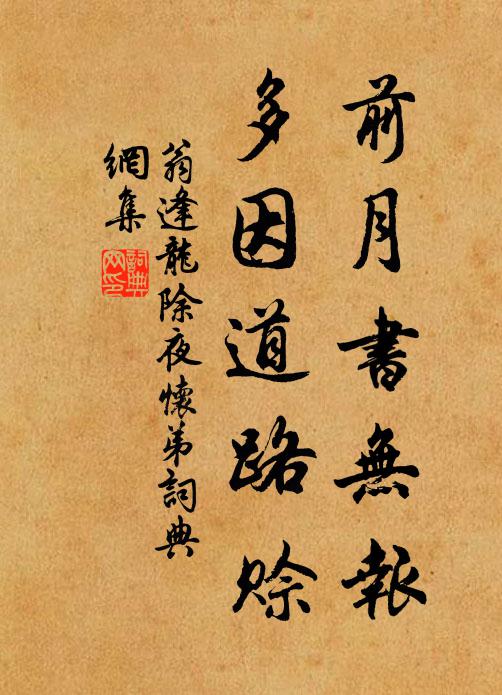 前月書無報
多因道路賒
翁逢龍除夜懷弟詞典
網集
詞典
网印